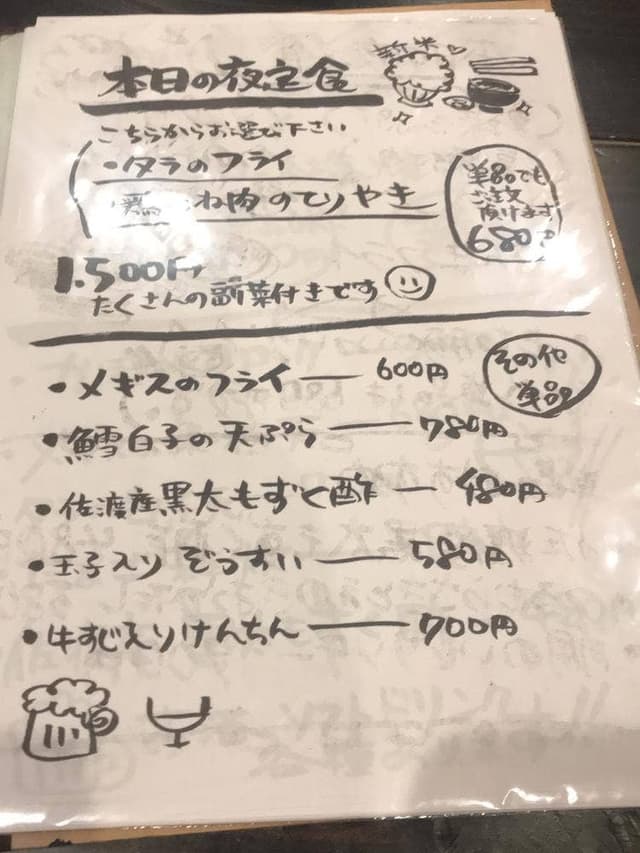 本日の夜定食
新米
こちらからお選び下さい
・タラのフライ
鶏むね肉のてりやき
単品でも
ご注文
頂けます
680円
1.500円
たくさんの副菜付きです
その他
単品
・メギスのフライ — 600円
・鱈白子の天ぷら — 780円
・佐渡産黒太もずく酢 — 480円
・玉子入り ぞうすい — 580円
・牛すじ入りけんちん — 700円